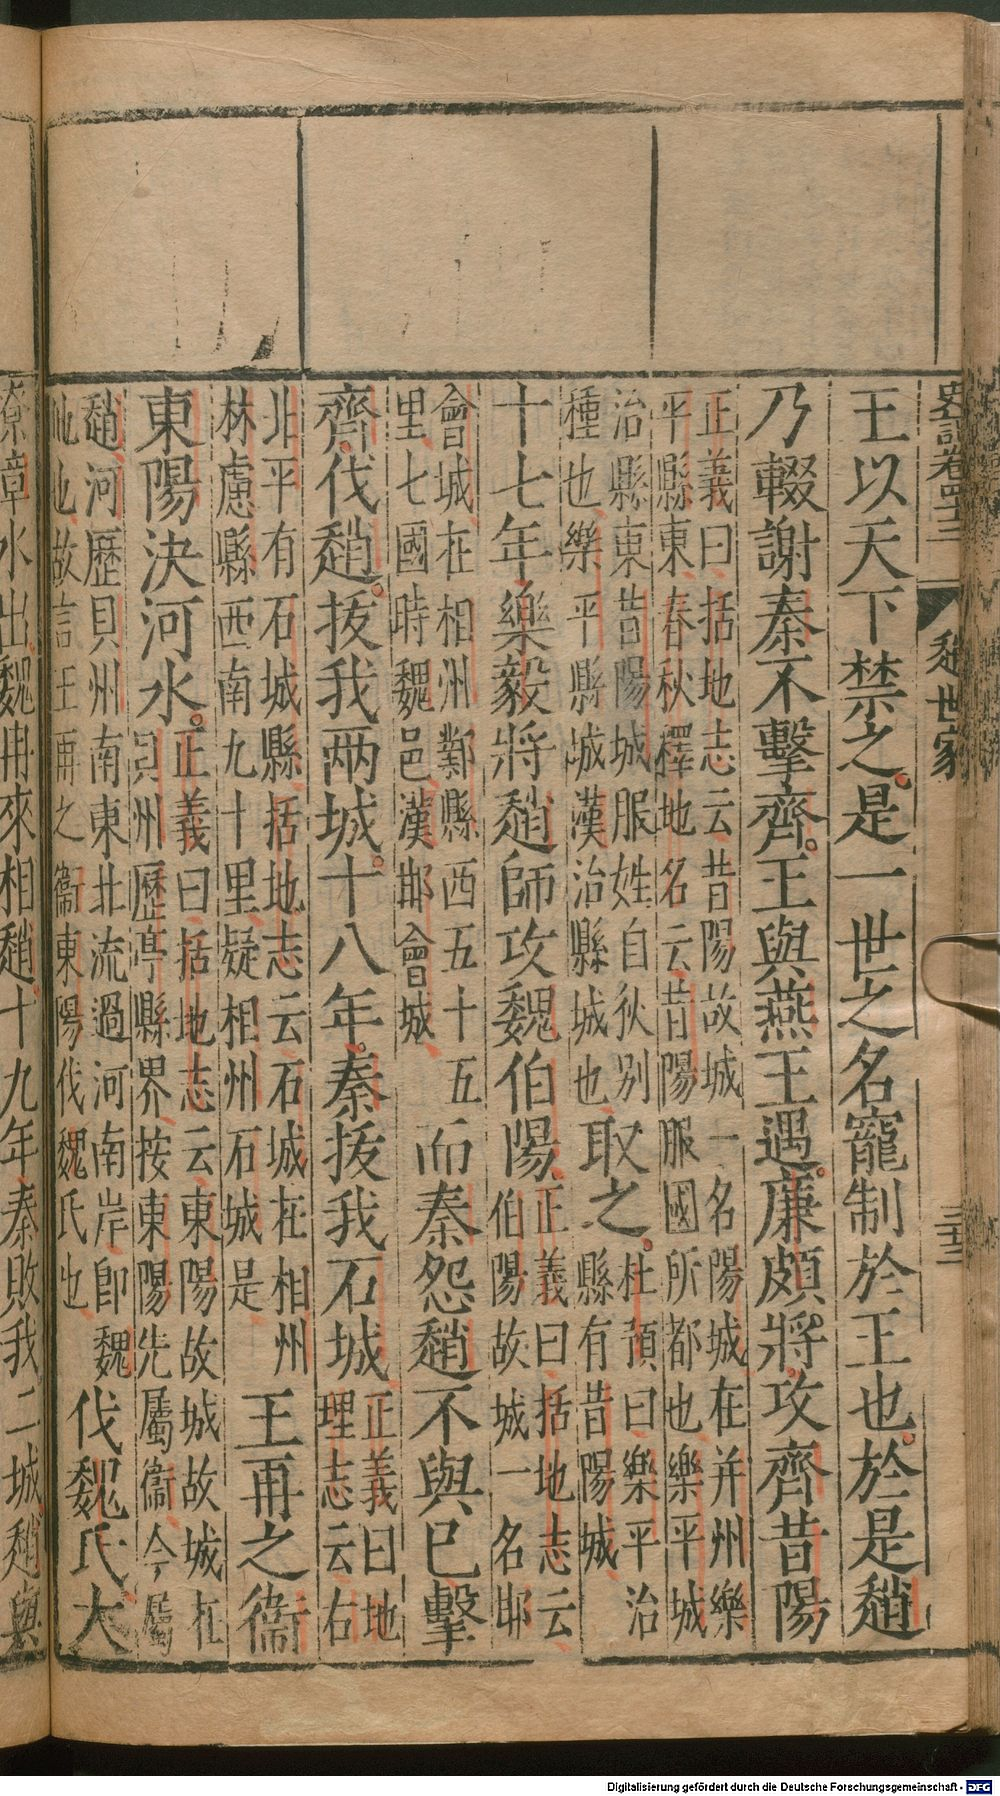 史記卷四十三 趙世家 三十三
王以天下禁之是一世之名寵制於王也於是趙
乃輟謝秦不擊齊王與燕王遇廉頗將攻齊昔陽
正義曰括地志云昔陽故城一名陽城在并州樂
平縣東春秋釋地名云昔陽服國所都也樂平城
治縣東昔陽城服姓自狄別
種也樂平縣城漢治縣城也
取之
杜預曰樂平治
縣有昔陽城
十七年樂毅將趙師攻魏伯陽
正義曰括地志云
伯陽故城一名邯
會城在相州鄴縣西五十五
里七國時魏邑漢邯會城
而秦怨趙不與已擊
齊伐趙拔我兩城十八年秦拔我石城
正義曰地
理志云右
北平有石城縣括地志云石城在相州
林慮縣西南九十里疑相州石城是
王再之衛
東陽決河水
正義曰括地志云東陽故城故城在
貝州歷亭縣界按東陽先屬衛今屬
趙河歷貝州南東北流過河南岸即魏
地也故言王再之衛東陽伐魏氏也
伐魏氏大
潦章水出魏冉來相趙十九年秦敗我二城趙與
Digitalisierung gefördert durch die Deutsche Forschungsgemeinschaft - DFG